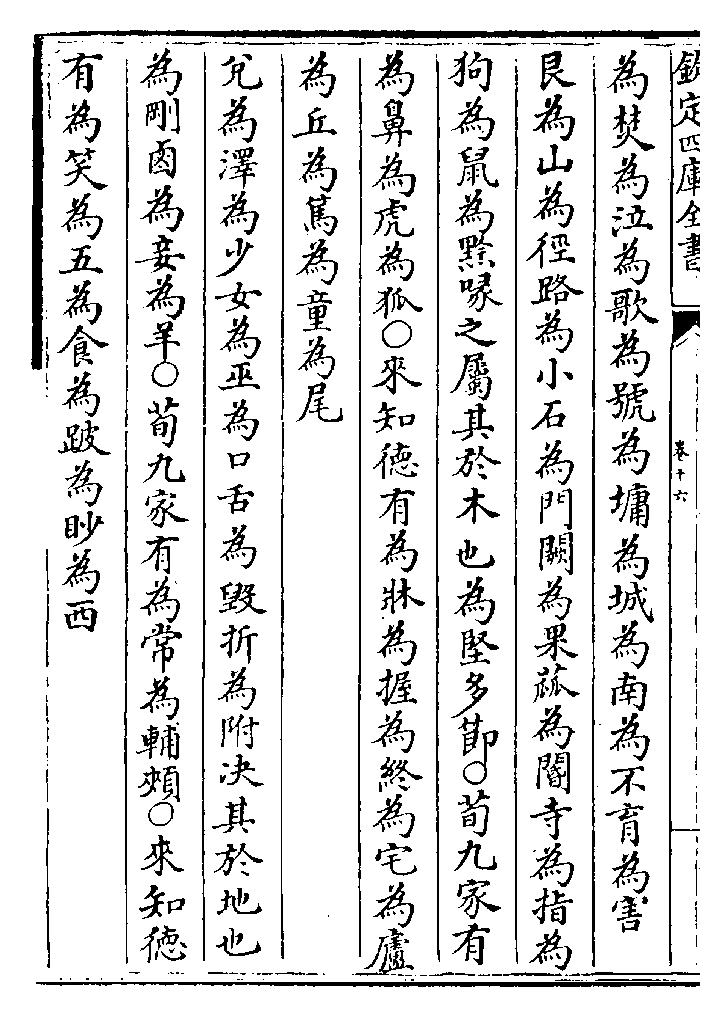 欽定四庫全書
卷十六
為焚為泣為歌為號為墉為城為南為不育為害
艮為山為徑路為小石為門闕為果蓏為閽寺為指為
狗為鼠為黔喙之屬其於木也為堅多節○荀九家有
為鼻為虎為狐○來知德有為牀為握為終為宅為廬
為丘為篤為童為尾
兊為澤為少女為巫為口舌為毀折為附決其於地也
為剛鹵為妾為羊○荀九家有為常為輔頰○來知德
有為笑為五為食為跛為眇為西